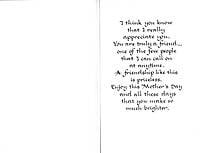 I think you know
that I really
appreciate you.
You are truly a friend...
one of the few people
that I can call on
at anytime.
A friendship like this
is priceless.
Enjoy this Mother's Day
and all these days
that you make so
much brighter.